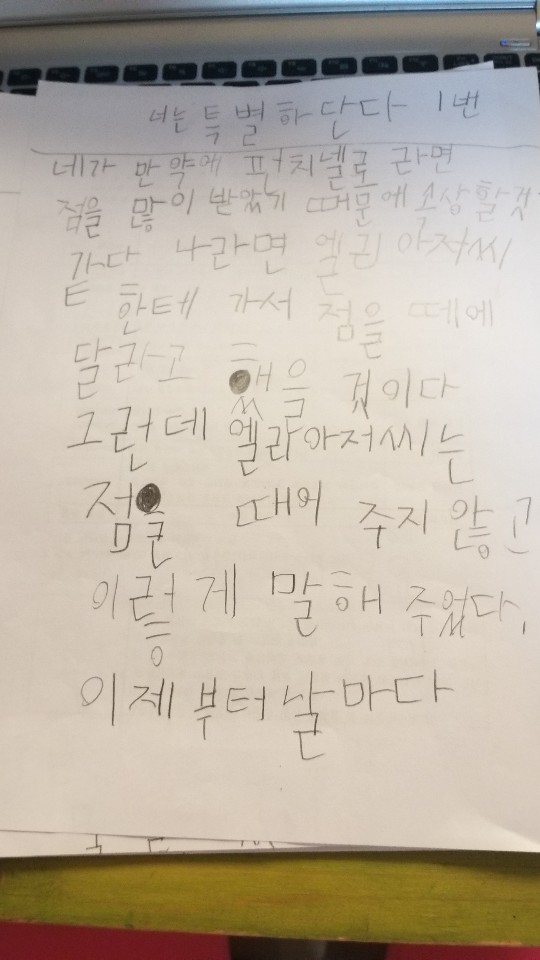 너는 특별하단다 1번
네가 만약에 펀치넬로 라면
점을 많이 받았기 때문에 속상할것
같다 나라면 엘리 아저씨
한테 가서 점을 떼에
달라고 했을 것이다
그런데 엘리아저씨는
점을 때어 주지 않고
이렇게 말해 주었다.
이제부터 날마다